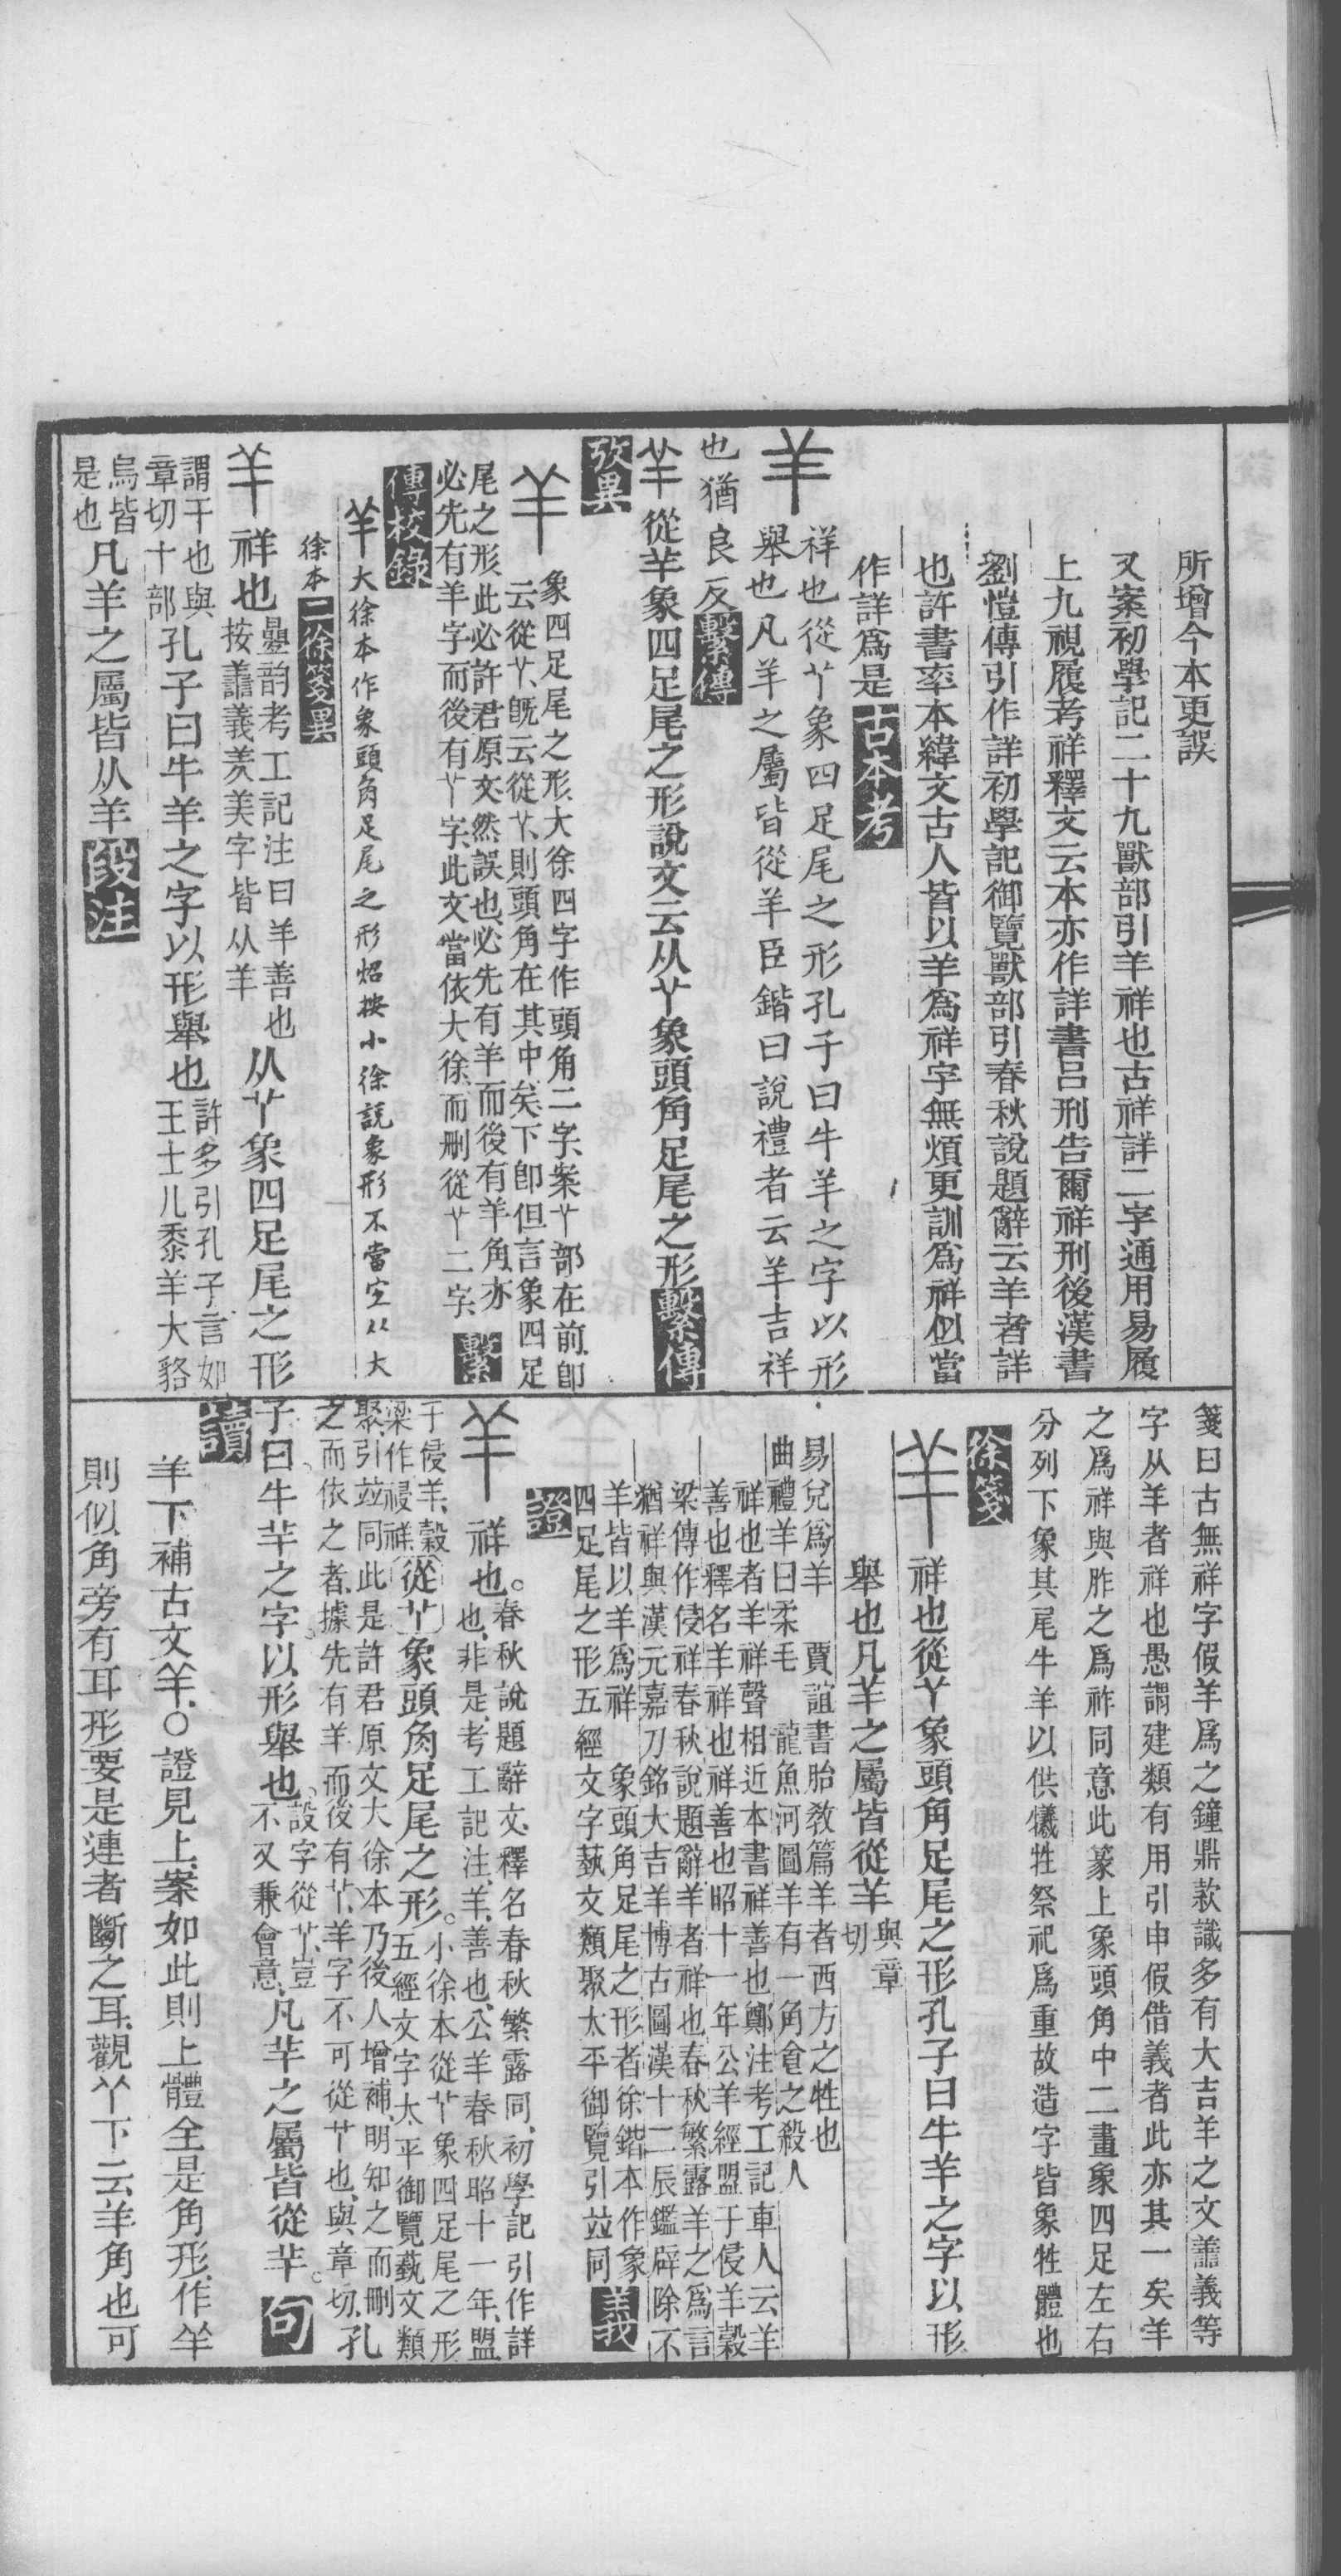 所增今本更誤
又案初學記二十九獸部引羊祥也古祥詳二字通用易履
上九視履考祥釋文云本亦作詳書呂刑告爾祥刑後漢書
劉愷傳引作詳初學記御覽獸部引春秋說題辭云羊者詳
也許書率本緯文古人皆以羊爲祥字無煩更訓爲祥似當
作詳爲是古本考
羊
祥也從𦫳象四足尾之形孔子曰牛羊之字以形
舉也凡羊之屬皆從羊臣鍇曰說禮者云羊吉祥
也猶良反繫傳
羊從羊象四足尾之形說文云从𦫳象頭角足尾之形繫傳
攷異
羊
象四足尾之形大徐四字作頭角二字案𦫳部在前卽
云從𦫳旣云從𦫳則頭角在其中矣下卽但言象四足
尾之形此必許君原文然誤也必先有羊而後有羊角亦
必先有羊字而後有𦫳字此文當依大徐而刪從𦫳二字繫
傳校錄
羊大徐本作象頭角足尾之形炤按小徐說象形不當空从大
徐本二徐箋異
羊祥也
曡韵考工記注曰羊善也
按譱義羑美字皆从羊
从𦫳象四足尾之形
謂干也與
章切十部
孔子曰牛羊之字以形舉也
許多引孔子言如
王士儿黍羊大貉
烏皆
是也
凡羊之屬皆从羊段注
箋曰古無祥字假羊爲之鐘鼎款識多有大吉羊之文譱義等
字从羊者祥也愚謂建類有用引申假借義者此亦其一矣羊
之爲祥與胙之爲祚同意此篆上象頭角中二畫象四足左右
分列下象其尾牛羊以供犧牲祭祀爲重故造字皆象牲體也
徐箋
羊
祥也從𦫳象頭角足尾之形孔子曰牛羊之字以形
舉也凡羊之屬皆從羊
與章
切
易兌爲羊　賈誼書胎敎篇羊者西方之牲也
曲禮羊曰柔毛　龍魚河圖羊有一角食之殺人
祥也者羊祥聲相近本書祥善也鄭注考工記車人云羊
善也釋名羊祥也祥善也昭十一年公羊經盟于侵羊穀
梁傳作侵祥春秋說題辭羊者祥也春秋繁露羊之爲言
猶祥與漢元嘉刀銘大吉羊博古圖漢十二辰鑑辟除不
羊皆以羊爲祥　象頭角足尾之形者徐鍇本作象
四足尾之形五經文字藝文類聚太平御覽引竝同義
證
羊祥也
春秋說題辭文釋名春秋繁露同初學記引作詳
也非是考工記注羊善也公羊春秋昭十一年盟
于侵羊穀
梁作祲祥
從𦫳象頭角足尾之形
小徐本從𦫳象四足尾之形
五經文字太平御覽藝文類
聚引竝同此是許君原文大徐本乃後人增補明知之而刪
之而依之者據先有羊而後有𦫳羊字不可從𦫳也與章切孔
子曰牛羊之字以形舉也
設字從𦫳豈
不又兼會意
凡羊之屬皆從羊句
讀
羊下補古文羊○證見上案如此則上體全是角形作𦍌
則似角旁有耳形要是連者斷之耳觀𦫳下云羊角也可